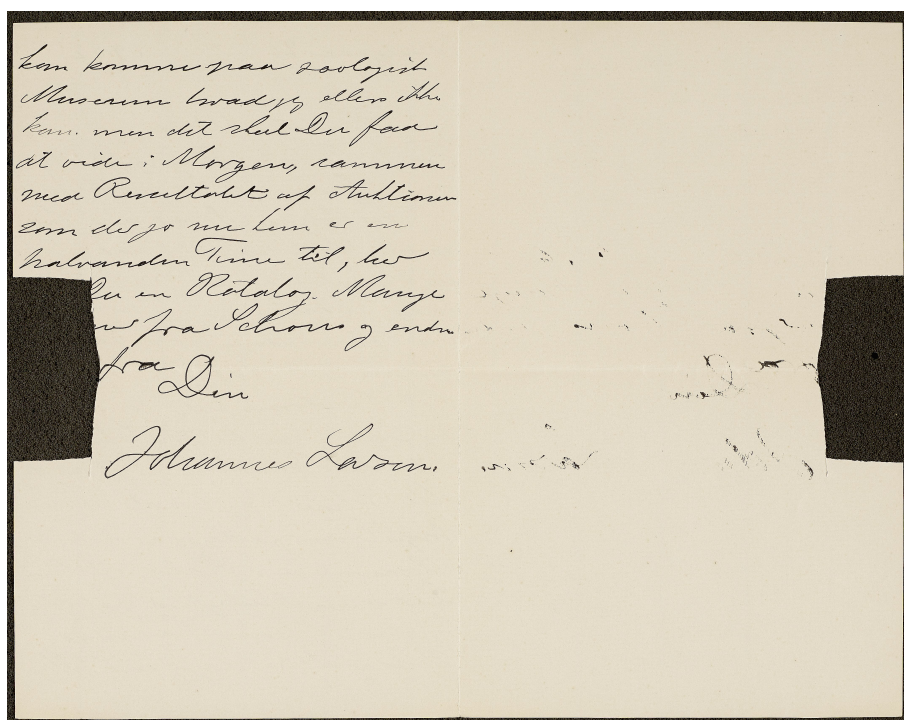 kan komme paa zoologisk
Museum hvad jeg ellers ikke
kan. men det skal Du faa
at vide i Morgen, sammen
med Resultatet af Auktionen
som der jo nu kun er en
halvanden Time til, her
Du en Katalog. Mange
fra Schous og endnu
fra
Din
Johannes Larsen.